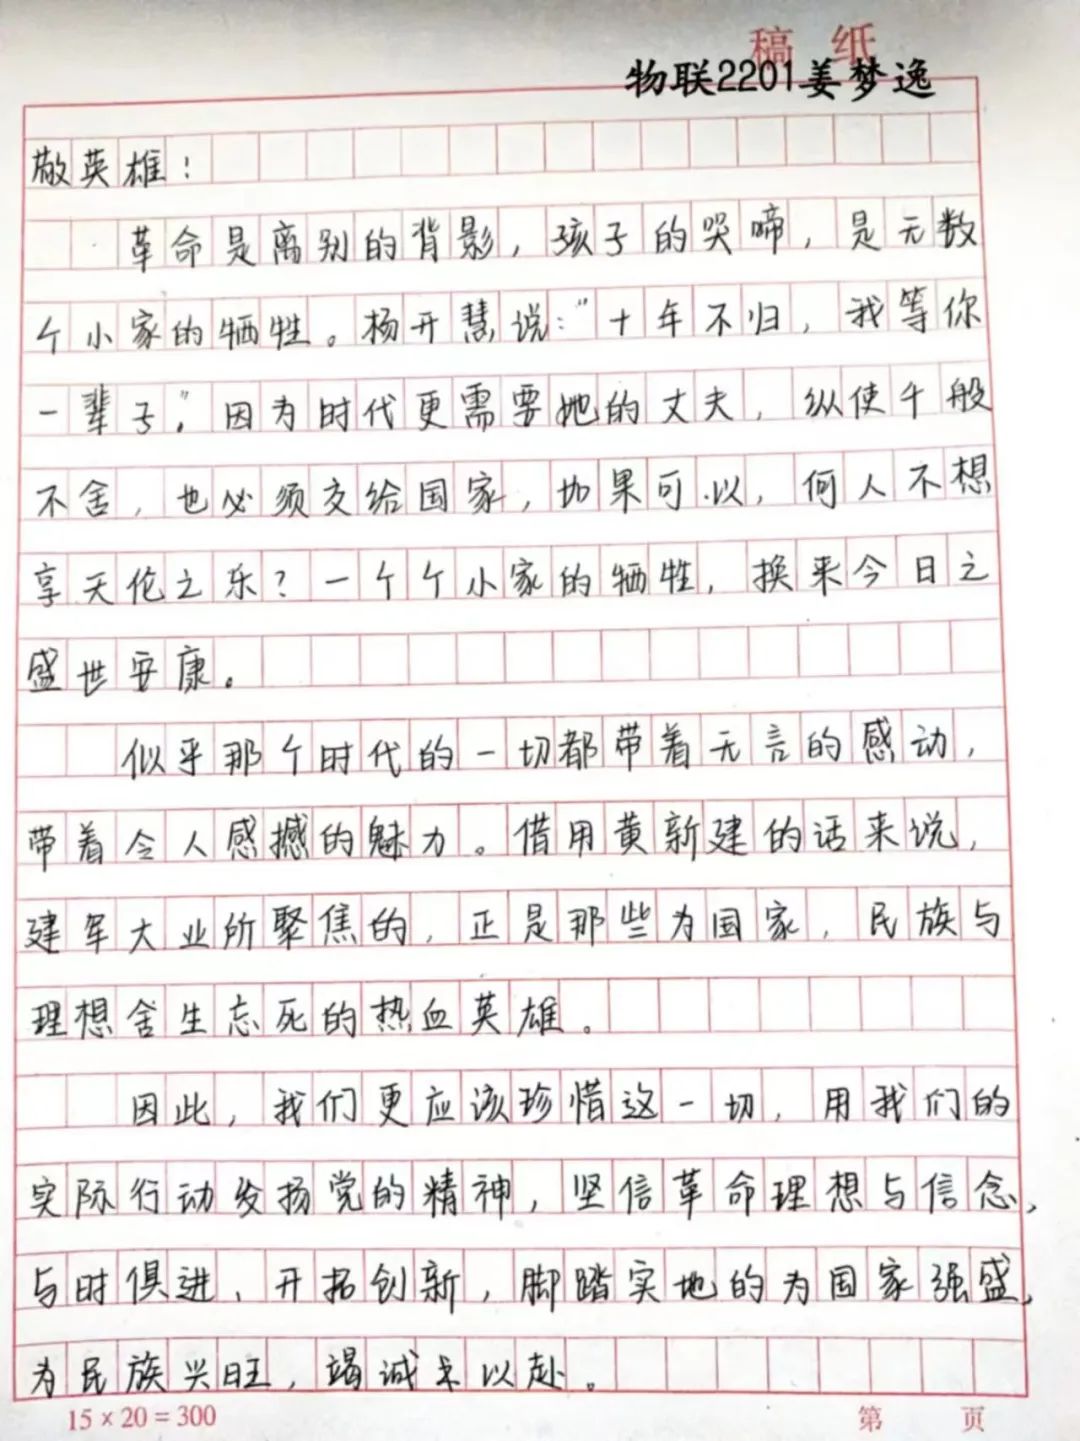 稿 纸
物联2201姜梦逸
敬英雄！
革命是离别的背影，孩子的哭啼，是无数
个小家的牺牲。杨开慧说："十年不归，我等你
一辈子。"因为时代更需要她的丈夫，纵使千般
不舍，也必须交给国家，如果可以，何人不想
享天伦之乐？一个个小家的牺牲，换来今日之
盛世安康。
似乎那个时代的一切都带着无言的感动，
带着令人感撼的魅力。借用黄新建的话来说，
建军大业所聚焦的，正是那些为国家，民族与
理想舍生忘死的热血英雄。
因此，我们更应该珍惜这一切，用我们的
实际行动发扬党的精神，坚信革命理想与信念，
与时俱进、开拓创新，脚踏实地的为国家强盛，
为民族兴旺，竭诚卡以赴。
15×20=300
第 页